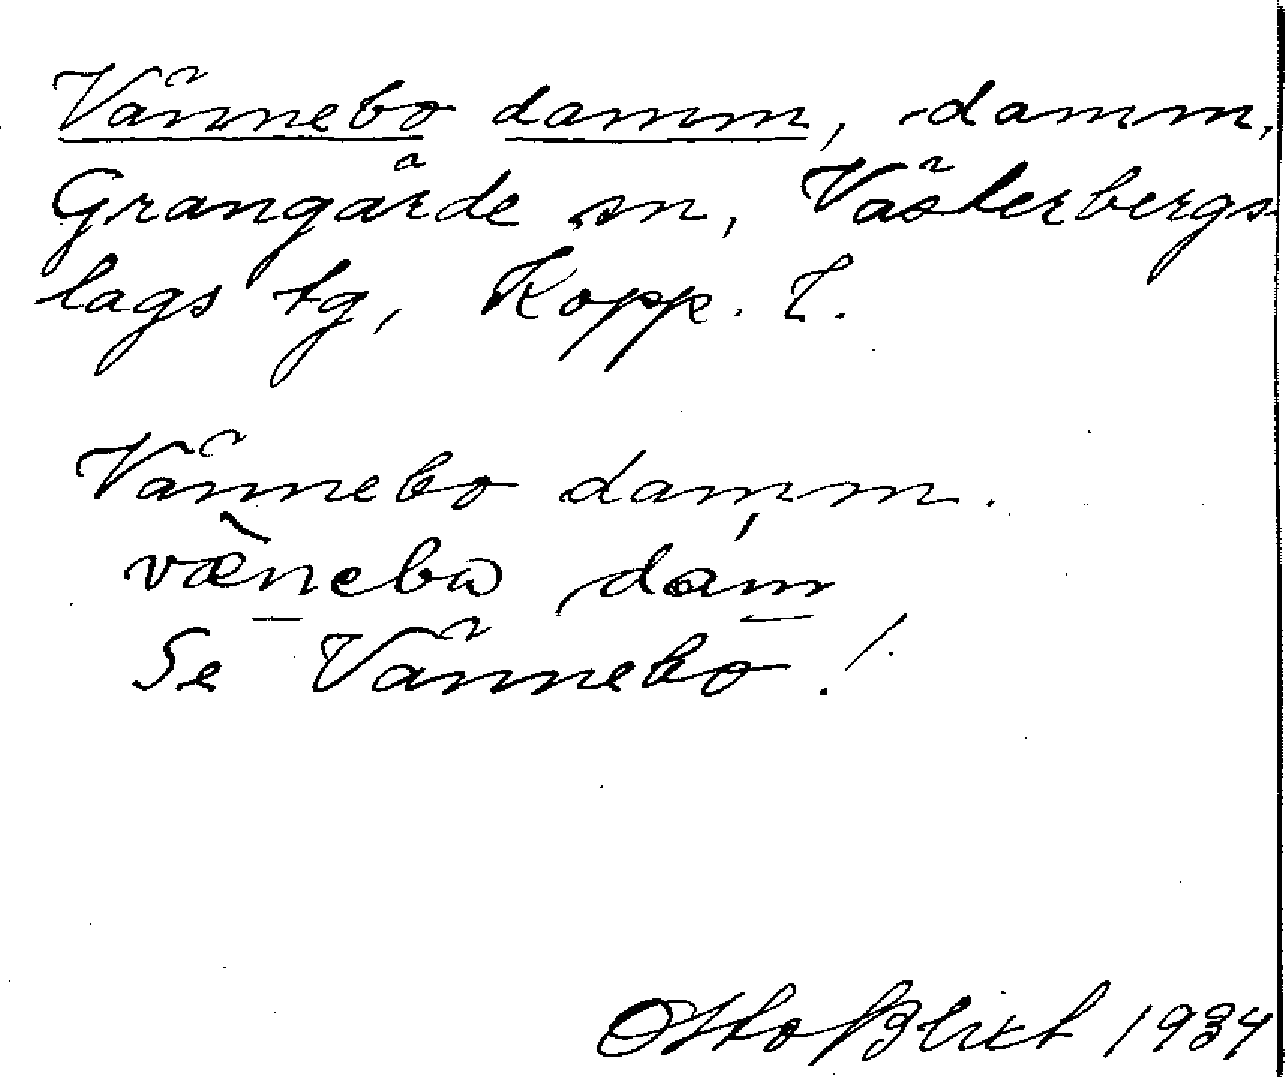 Vännebo damm, damm,
Grangärde sn, Västerbergs-
lags tg, Kopp. l.
Vännebo damm.
væ̀nebω dám
Se Vännebo!
Otto Blixt 1934